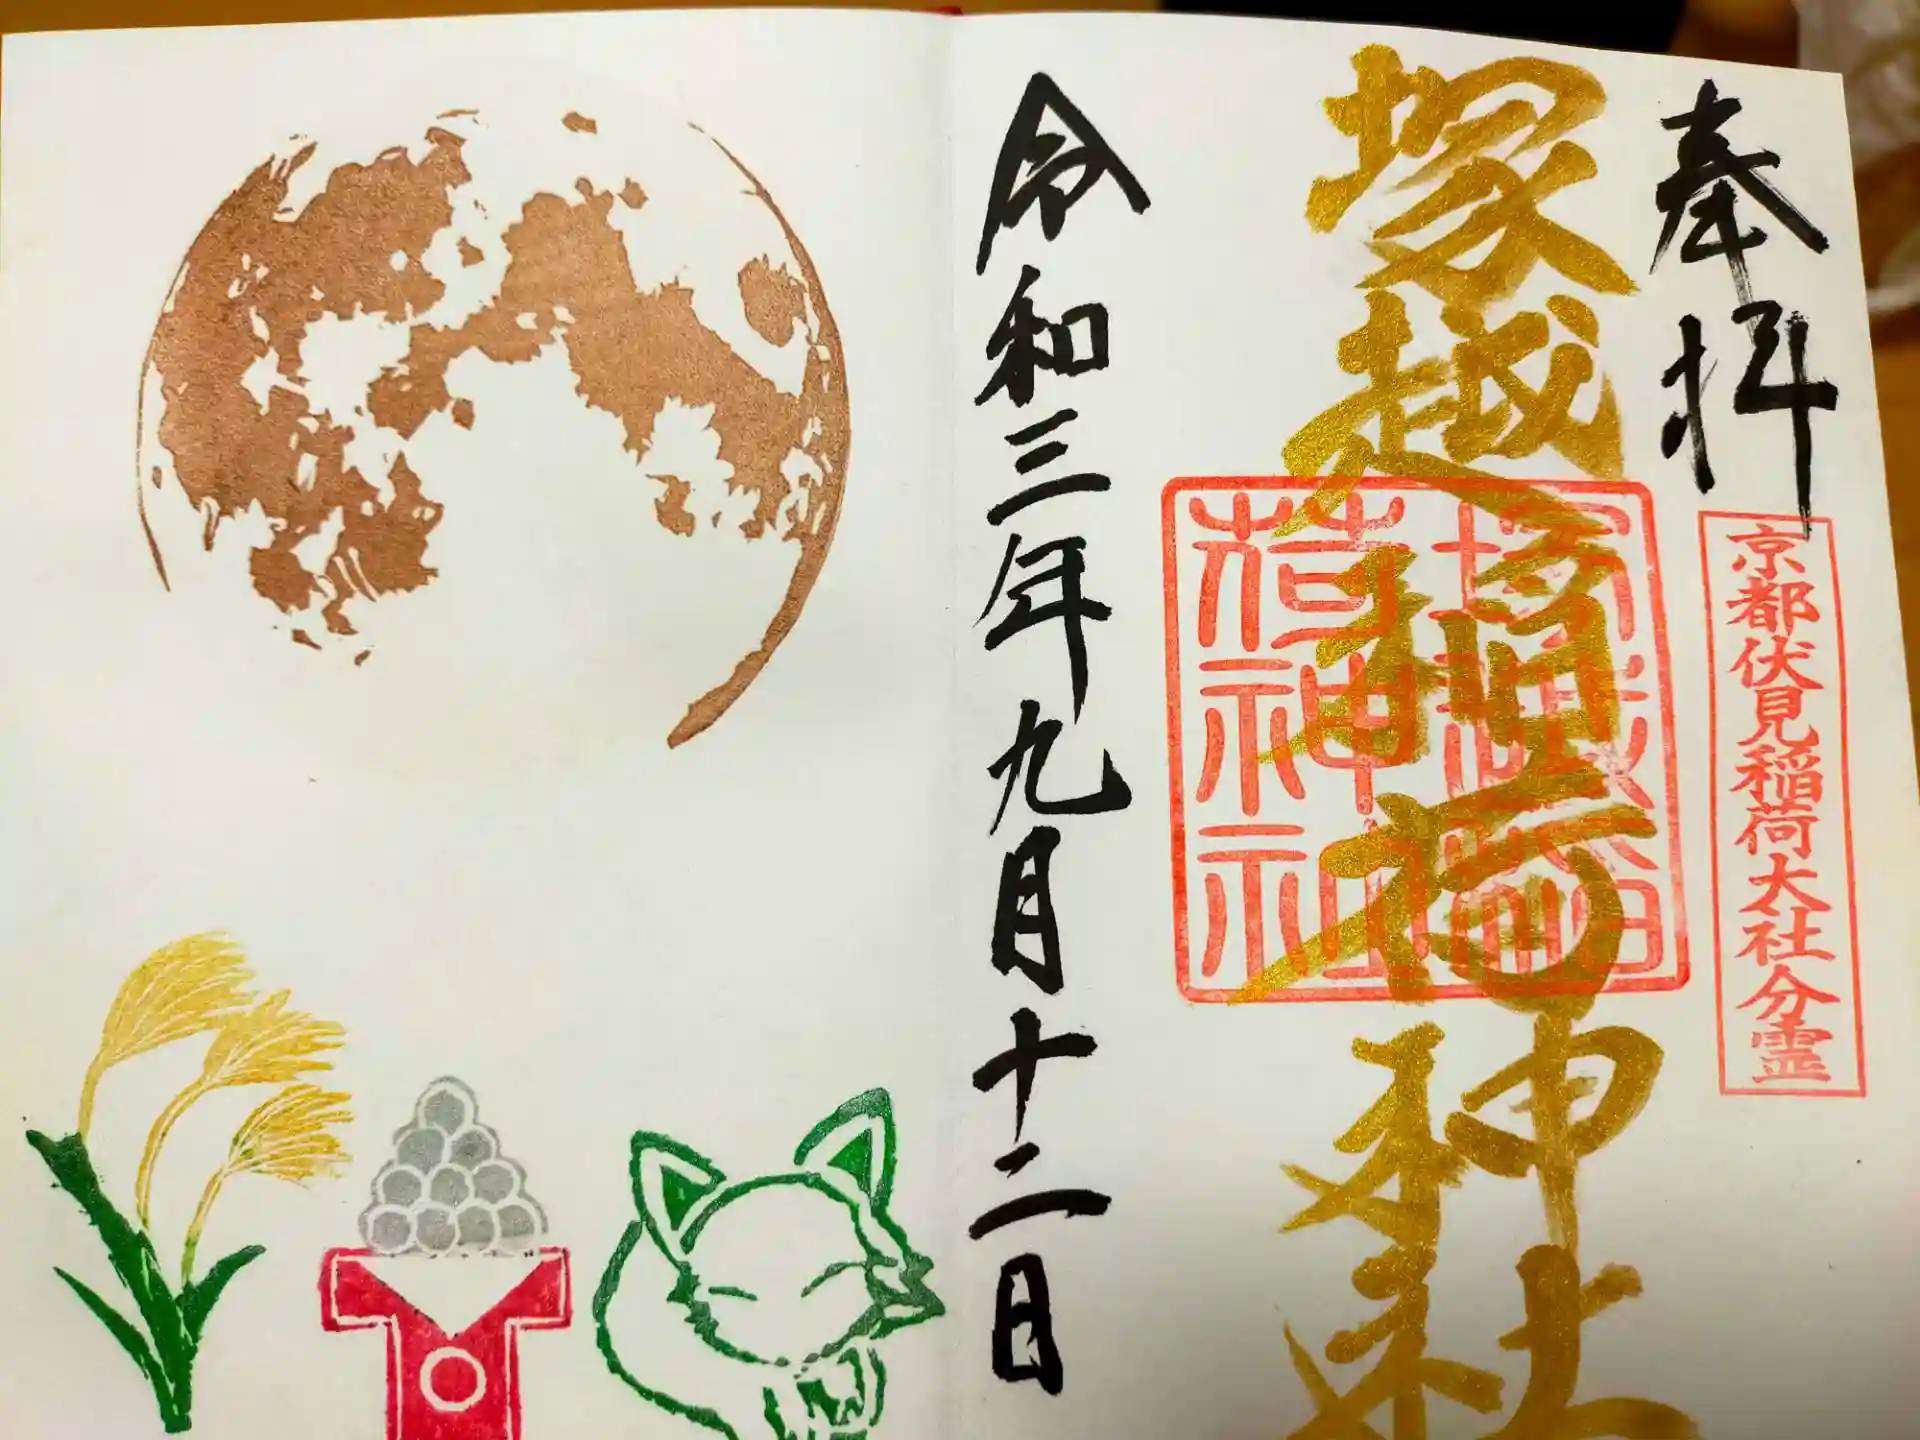 奉拝
京都伏見稲荷大社分霊
塚越稲荷神社
塚越稲荷神社
令和三年九月十二日